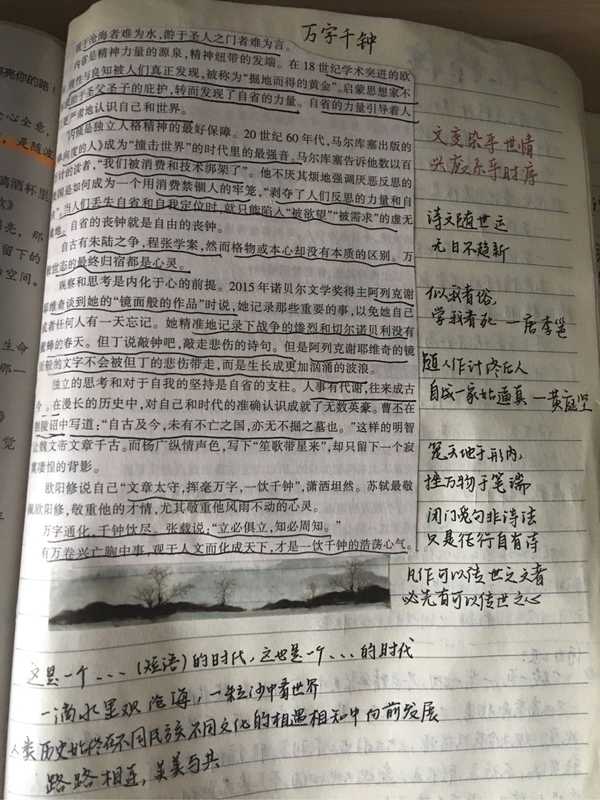 万字千钟
观于沧海者难为水，游于圣人之门者难为言。
内省是精神力量的源泉，精神纽带的发端。在18世纪学术突进的欧
性与良知被人们真正发现，被称为“掘地而得的黄金”。启蒙思想家不
圣父圣子的庇护，转而发现了自省的力量。自省的力量引导着人
更严肃地认识自己和世界。
内省是独立人格精神的最好保障。20世纪60年代，马尔库塞出版的
单向度的人》成为“撞击世界”的时代里的最强音。马尔库塞告诉他数以百
计的读者，“我们被消费和技术绑架了”。他不厌其烦地强调厌恶反思的
是如何成为一个用消费禁锢人的牢笼，“剥夺了人们反思的力量和自
”。当人们丢失自省和自我定位时，就只能陷入“被欲望”“被需求”的虚无
自省的丧钟就是自由的丧钟。
自古有朱陆之争，程张学案，然而格物或本心却没有本质的区别。万
世态的最终归宿都是心灵。
观察和思考是内化于心的前提。2015年诺贝尔文学奖得主阿列克谢
耶维奇谈到她的“镜面般的作品”时说，她记录那些重要的事，以免她自己
或者任何人有一天忘记。她精准地记录下战争的惨烈和切尔诺贝利没有
蜜蜂的春天。但丁说敲钟吧，敲走悲伤的诗句。但是阿列克谢耶维奇的镜
般的文字不会被但丁的悲伤带走，而是生长成更加汹涌的波浪。
独立的思考和对于自我的坚持是自省的支柱。人事有代谢，往来成古
今。在漫长的历史中，对自己和时代的准确认识成就了无数英豪。曹丕在
陵诏中写道：“自古及今，未有不亡之国，亦无不掘之墓也。”这样的明智
魏文帝文章千古。而杨广纵情声色，写下“笙歌带星来”，却只留下一个寂
寞凄惶的背影。
欧阳修说自己“文章太守，挥毫万字，一饮千钟”，潇洒坦然。苏轼最敬
佩欧阳修，敬重他的才情，尤其敬重他风雨不动的心灵。
万字通化，千钟饮尽。张载说：“立必俱立，知必周知。”
有万卷兴亡胸中事，观于人文而化成天下，才是一饮千钟的浩荡心气。
文变染乎世情
兴废系乎时序
诗文随世运
无日不趋新
似我者俗，
学我者死 —唐李邕
随人作计终后人
自成一家始逼真 —黄庭坚
笼天地于形内，
挫万物于笔端
闭门觅句非诗法
只是征行自有诗
凡作可以传世之文者
必先有可以传世之心
这是一个...（短语）的时代，这也是一个...的时代
一滴水里观沧海，一粒沙中看世界
人类历史始终在不同民族不同文化的相遇相知中向前发展
路路相连，美美与共